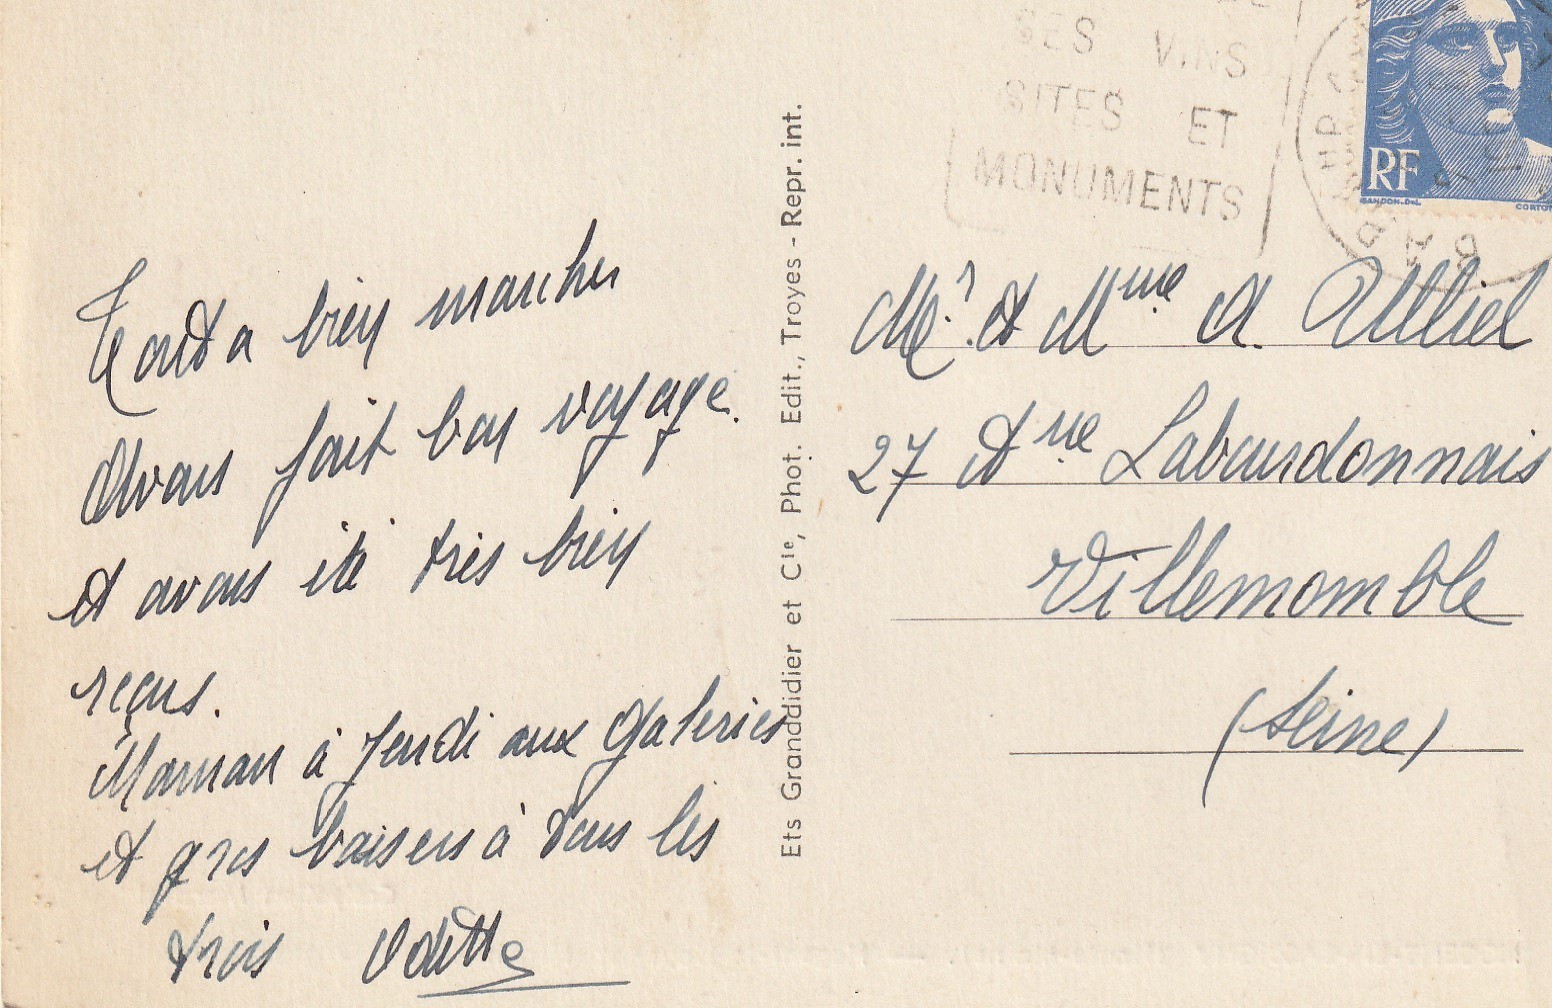 Tout a bien marcher
Avons fait bon voyage.
et avons été très bien
reçus.
Maman à Jeudi aux Galeries
et gros baisers à tous les
trois Odette
Ets Granddidier et Cie, Phot. Edit., Troyes - Repr. int.
SES VINS
SITES ET
MONUMENTS
RF
GANDON.DEL
Mr. et Mme A. Ulliel
27 Av
nue Labourdonnais
Villemomble
(Seine)